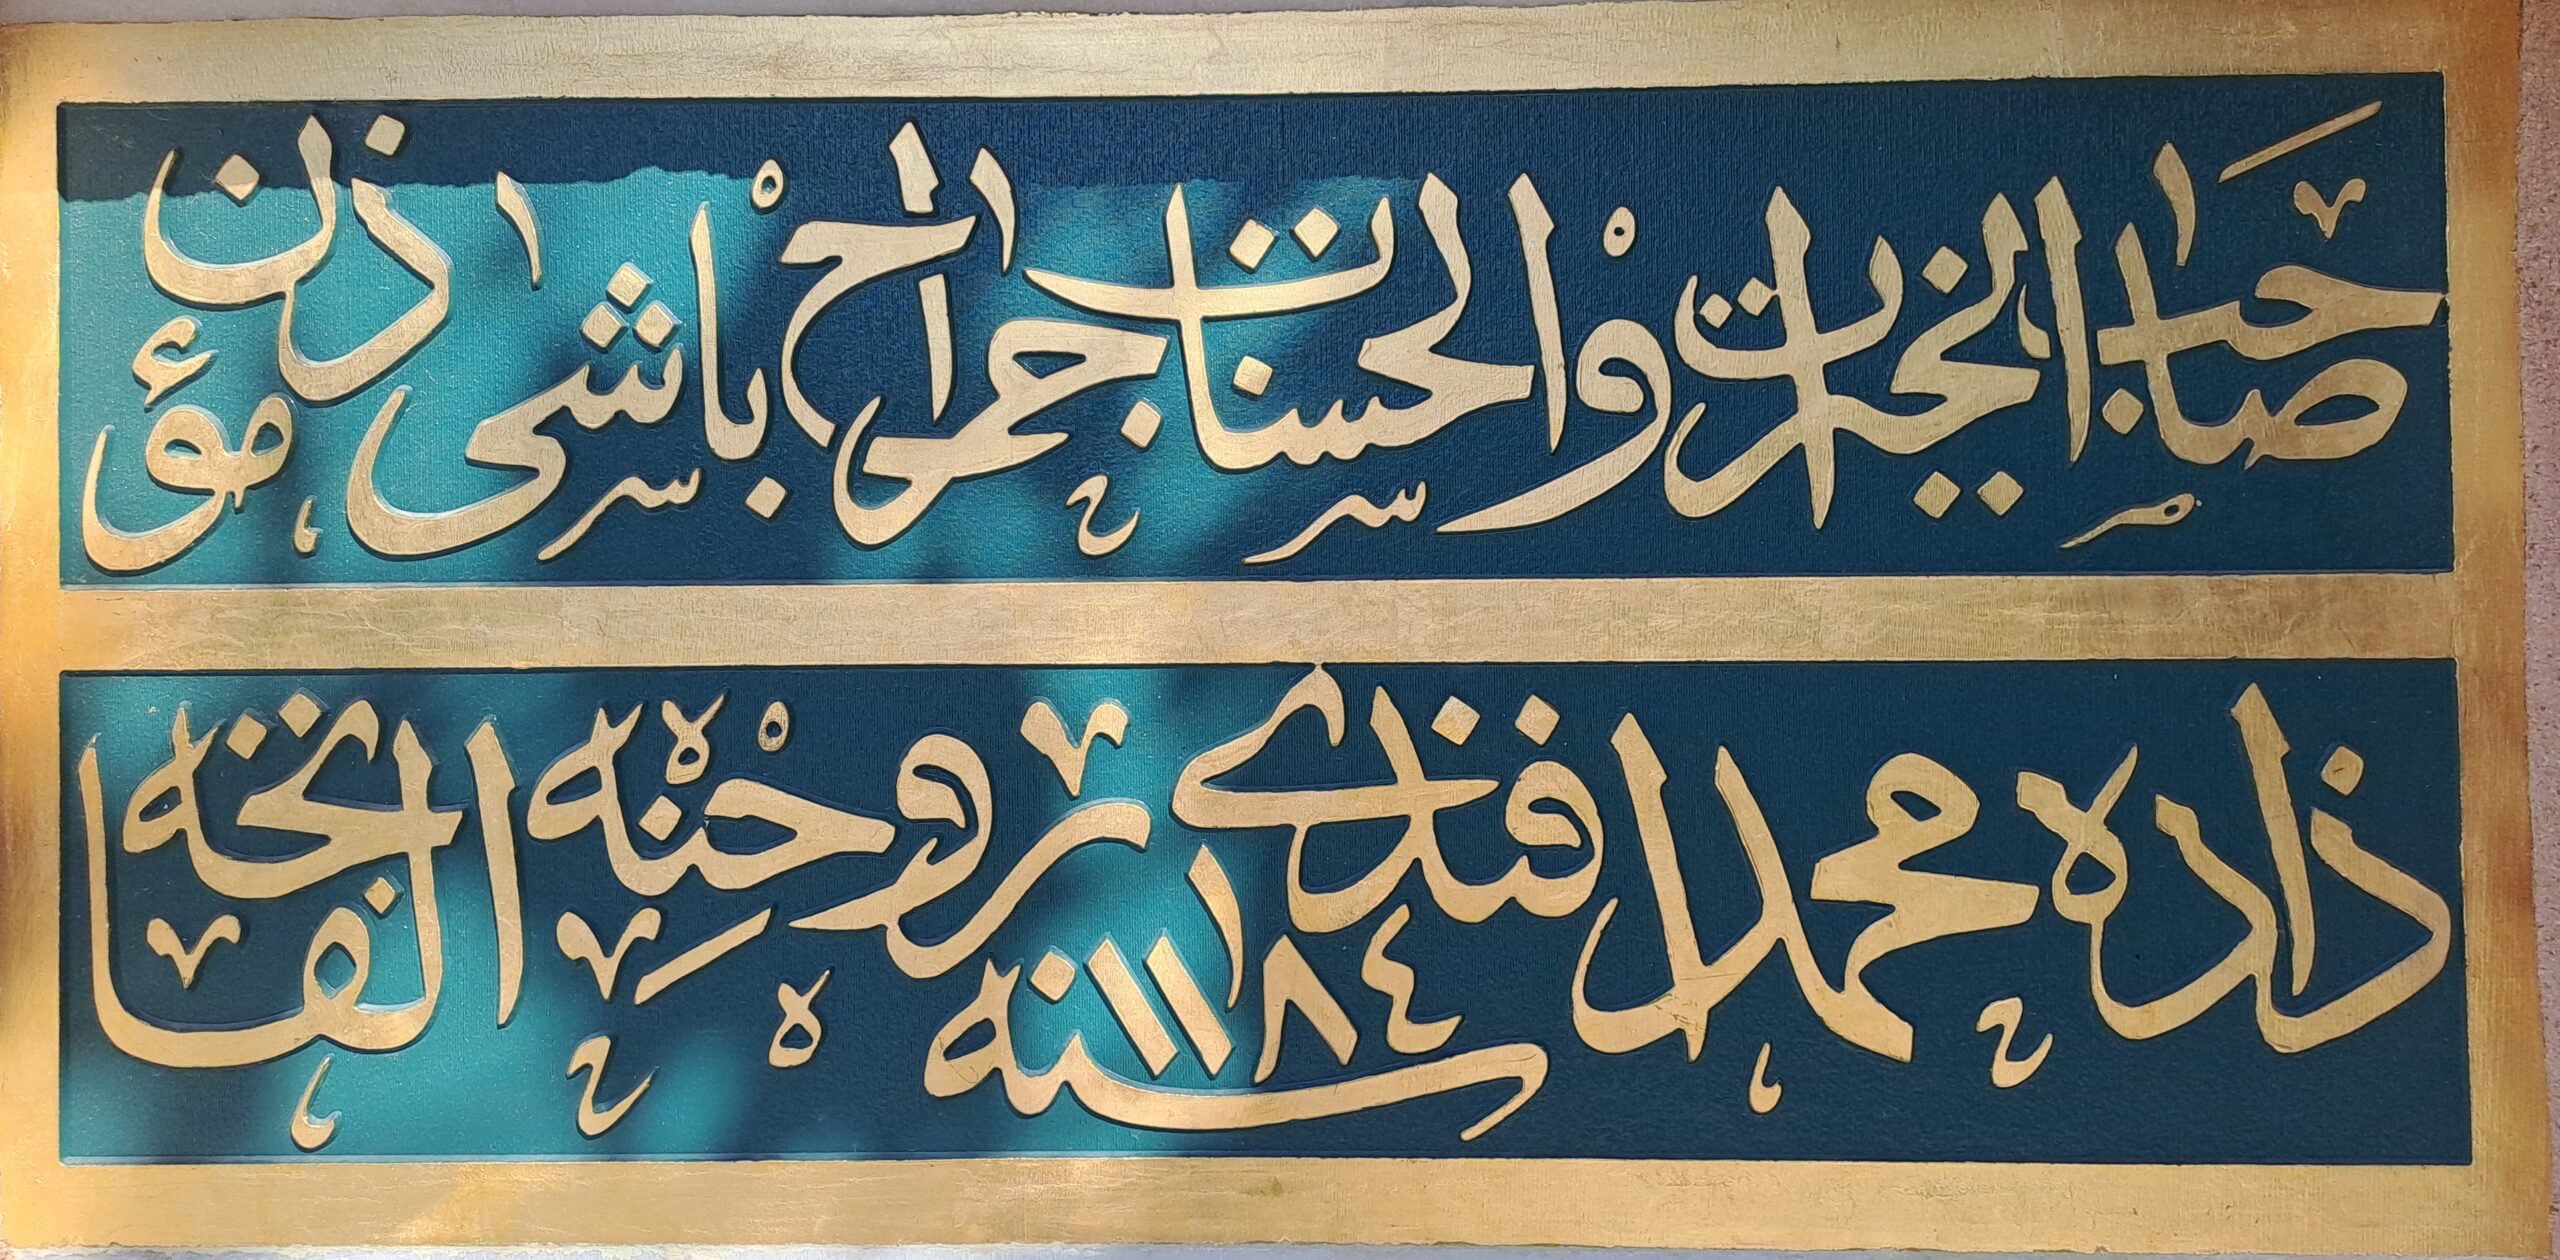 صاحب الخيرات والحسنات جراح باشى مؤذن
زاده محمد افندى روحنه الفاتحه سنه ١١٨٤